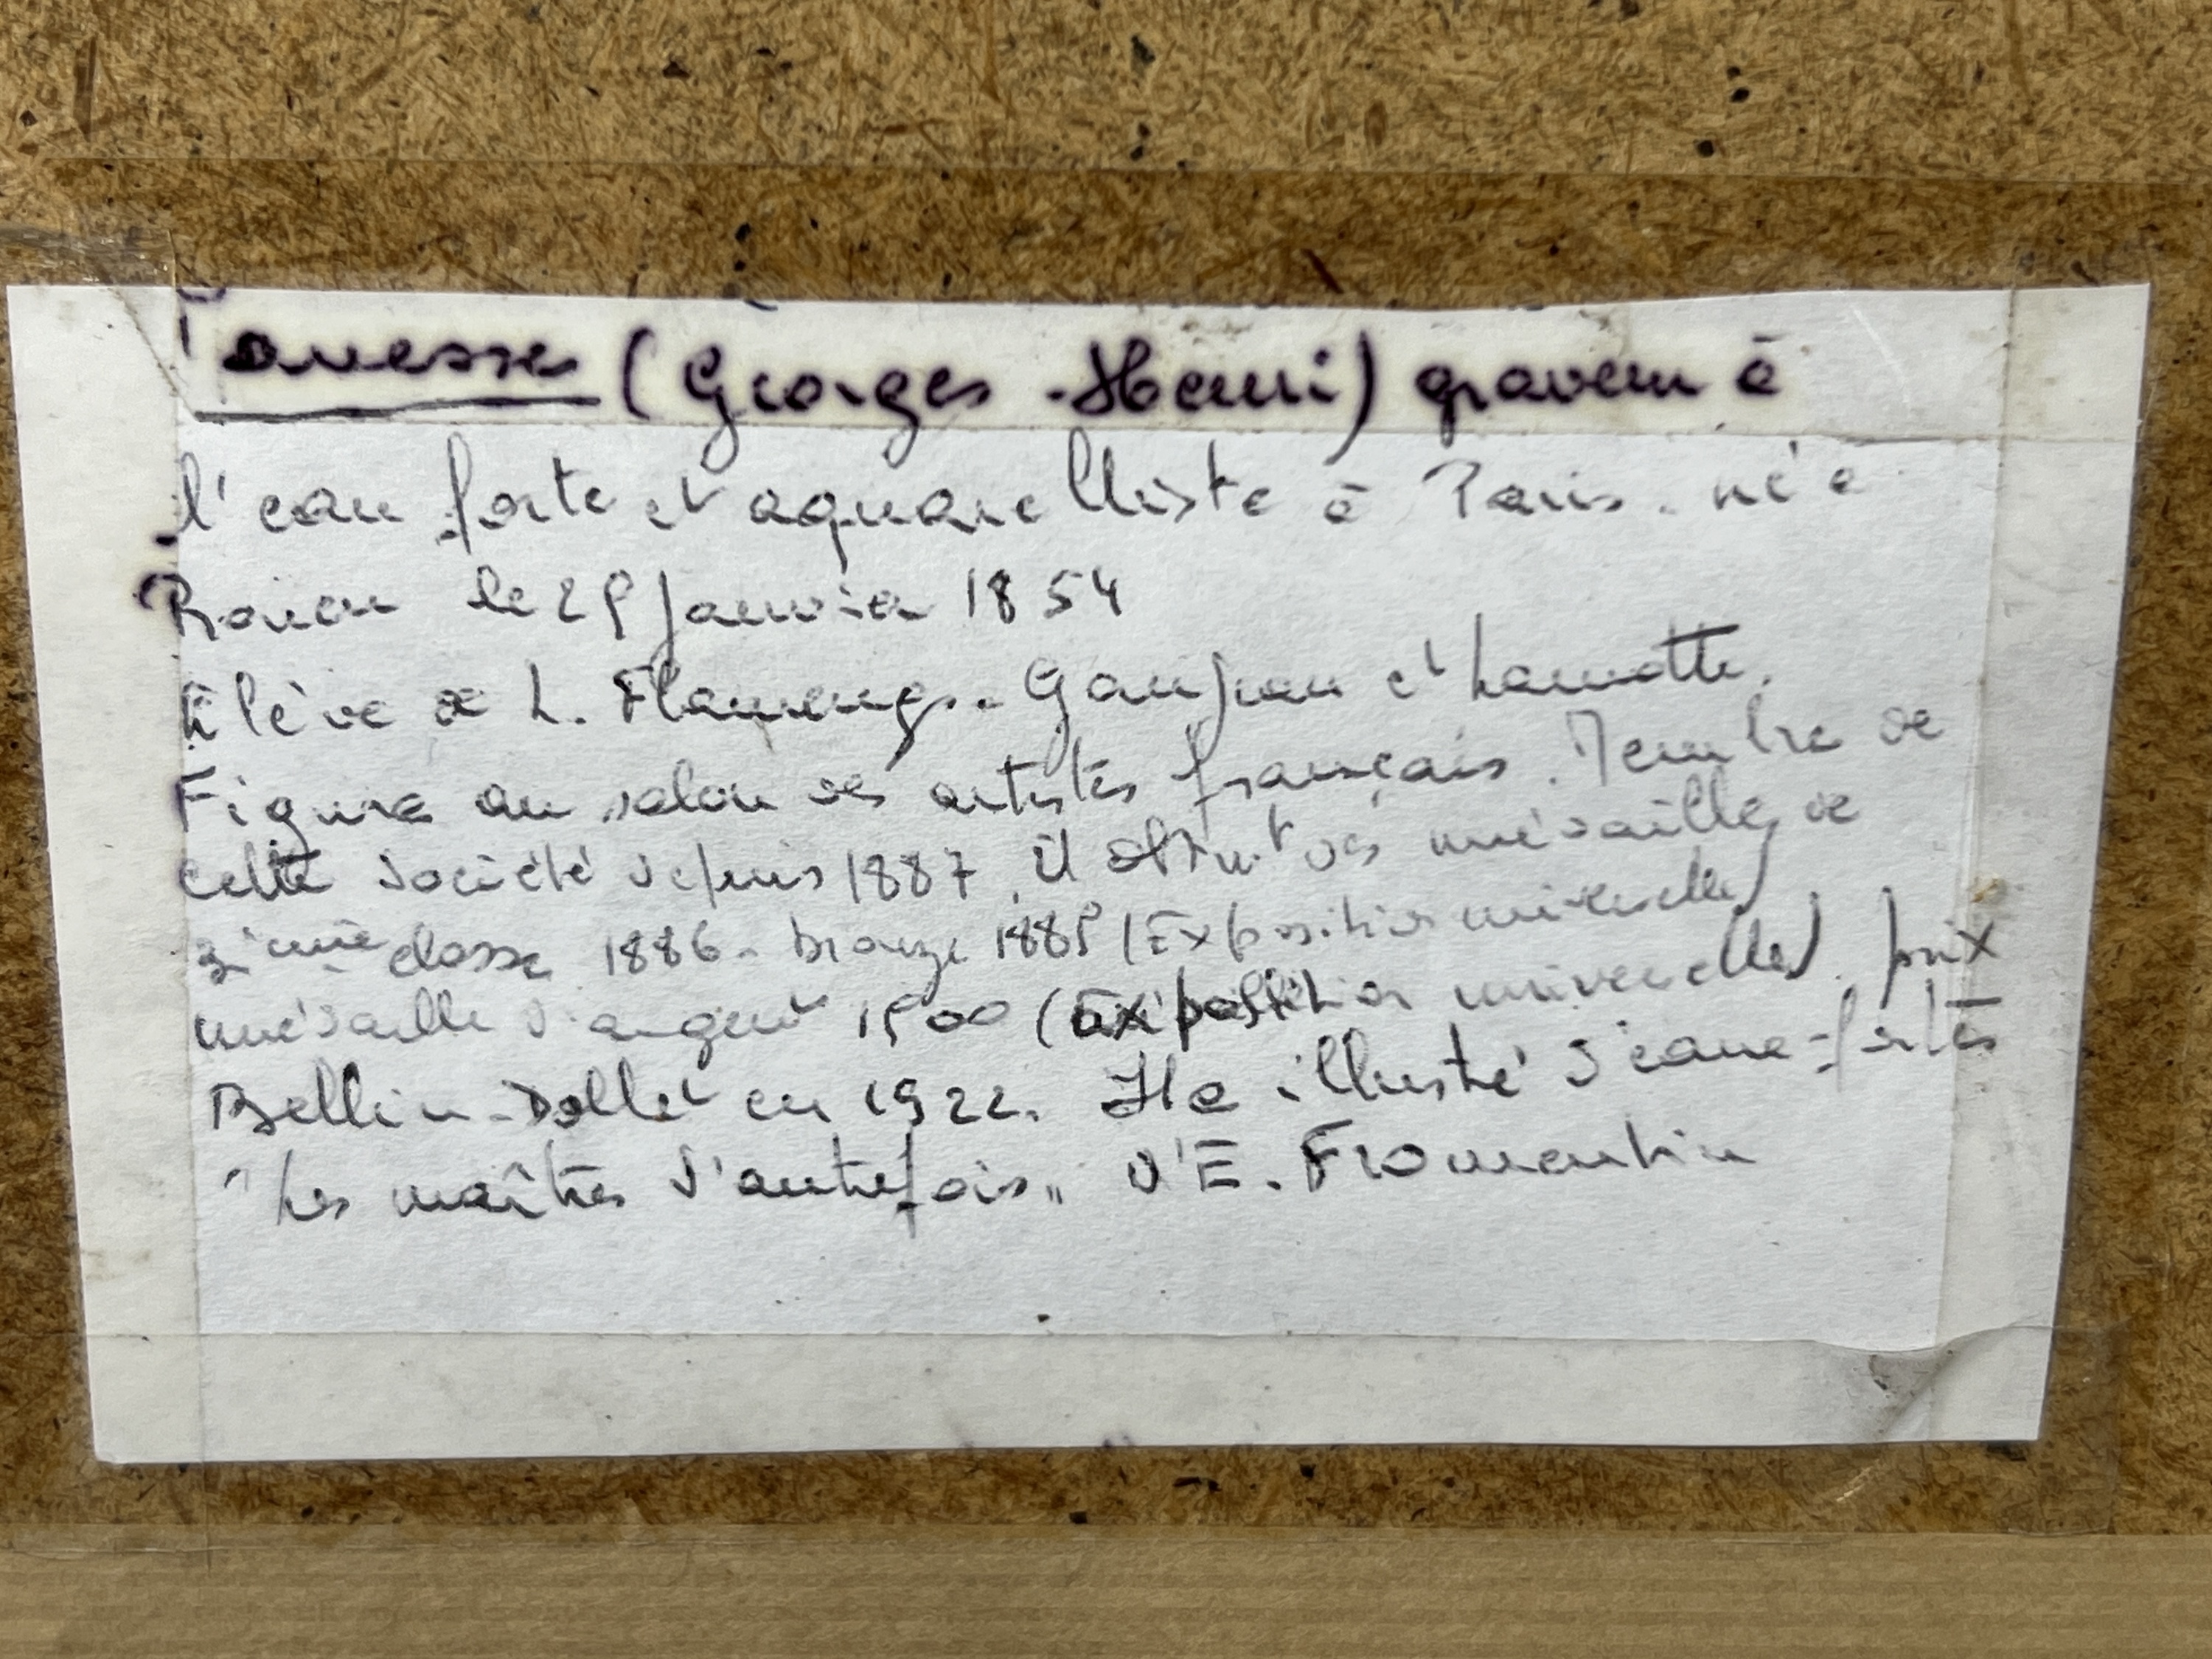 Lavesse (Georges-Henri) graveur à
l'eau forte et aquarelliste à Paris. né à
Rouen le 29 Janvier 1854
Elève de L. Flameng. Gaujean et Lamotte.
Figure au salon des artistes français. Membre de
cette société depuis 1887, il obtint des médailles de
3ième classe 1886. bronze 1889 (Exposition universelle)
médaille d'argent 1900 (Exposition universelle). prix
Bellin-Dollet en 1922. Il a illustré d'eaux-fortes
"Les maîtres d'autrefois" d'E. Fromentin